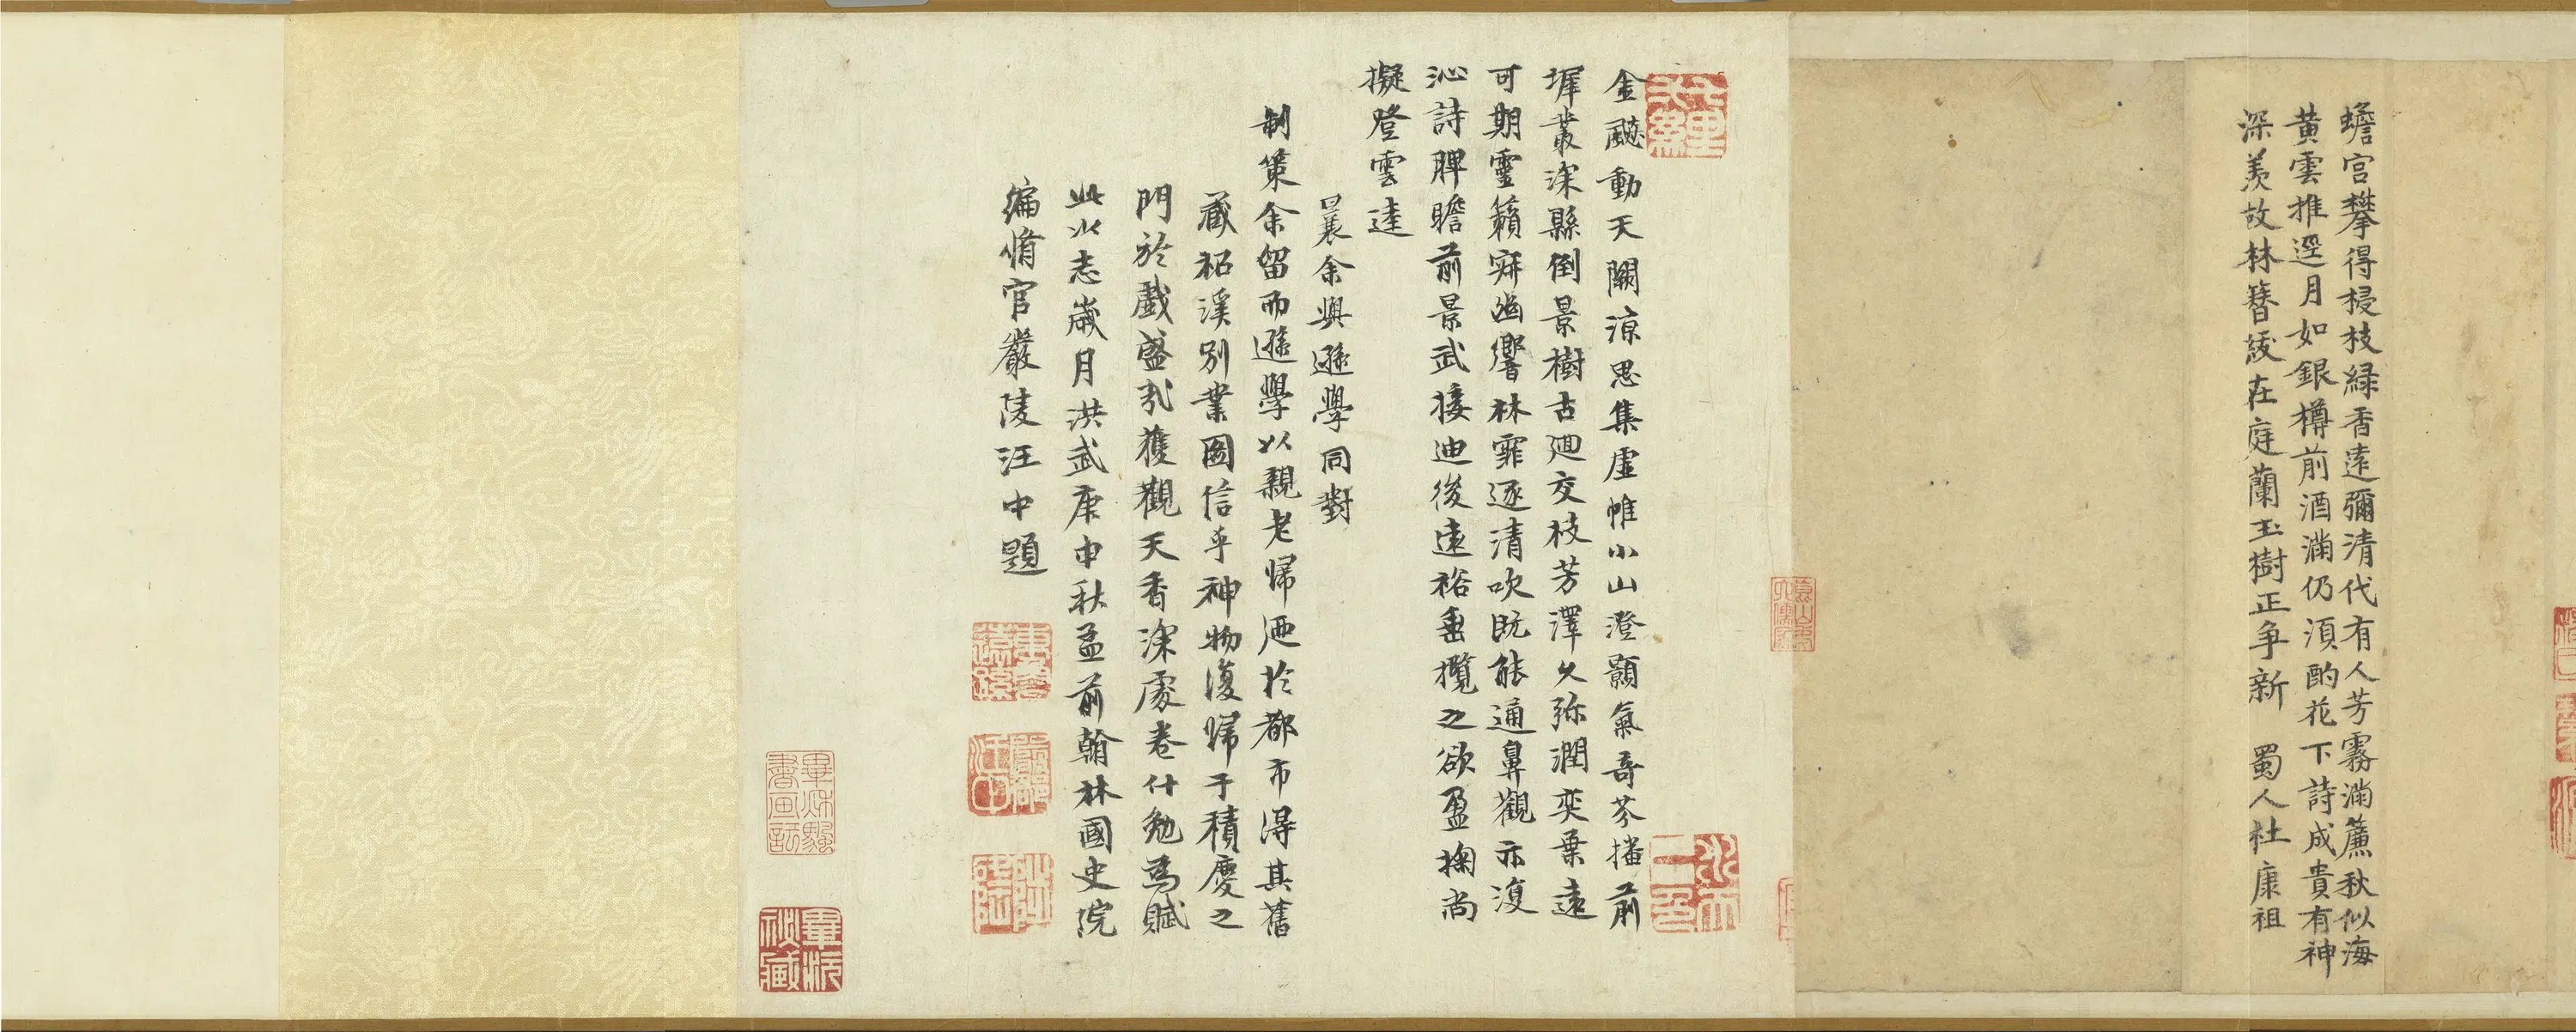 蟾宮攀得桂枝綠香遠彌清代有人芳霧滿簾秋似海
黄雲推逕月如銀樽前酒滿仍須酌花下詩成貴有神
深羨故林簪紱在庭蘭玉樹正争新 蜀人杜康祖
金飈動天闕涼思集虛帷小山澄顥氣奇芬播前
墀叢深縣倒景樹古廻交枝芳澤久弥潤奕葉遠
可期靈籟寂幽響林霏逐清吹既能通鼻觀亦復
沁詩脾瞻前景武接迪後遠裕垂攬之欲盈掬尚
擬登雲逵
曩余與遜學同對
制策余留而遜學以親老歸迺於都市得其舊
藏招溪別業圖信乎神物復歸于積慶之
門於戲盛哉獲觀天香深處卷什勉為賦
此以志歲月洪武庚申秋孟前翰林國史院
編脩官嚴陵汪中題
畢沅
秘藏